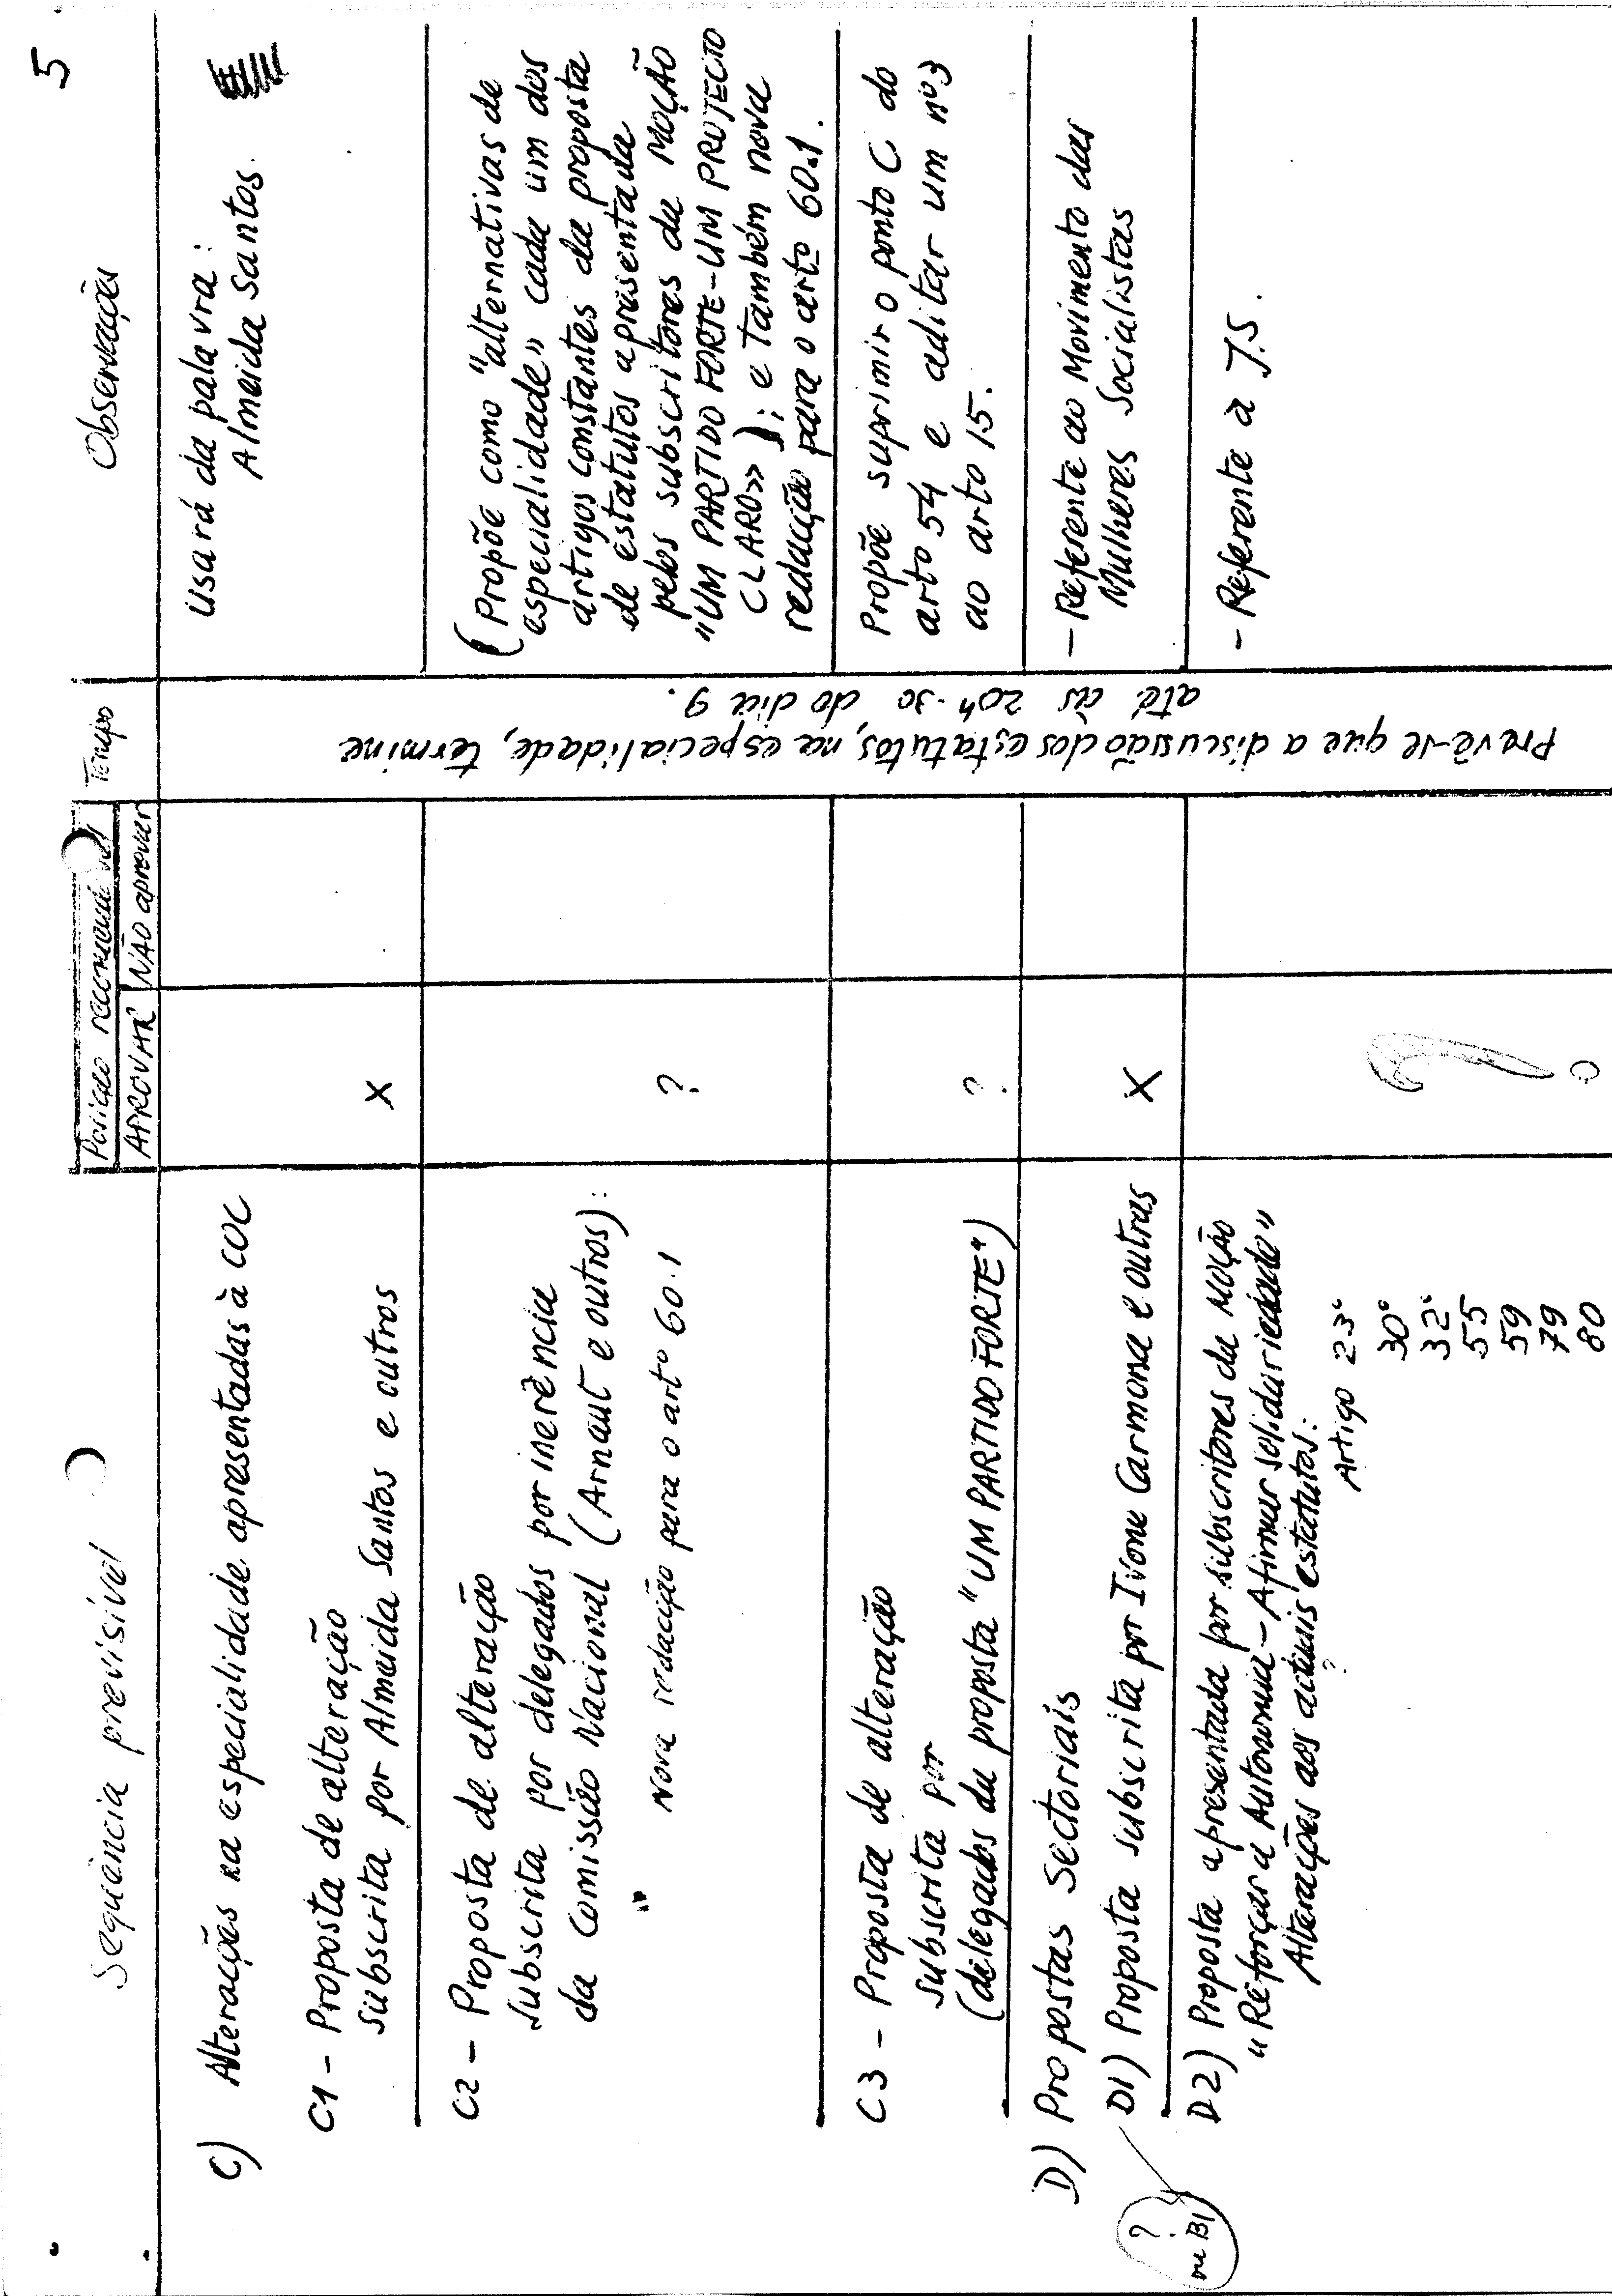 5
Sequência previsível
Posição recomendável
APROVAR
NÃO aprovar
Tempo
Observações
C) Alterações na especialidade apresentadas à COC
C1 - Proposta de alteração
subscrita por Almeida Santos e outros
X
Usará da palavra:
Almeida Santos.
C2 - Proposta de alteração
subscrita por delegados por inerência
da Comissão Nacional (Arnaut e outros):
Nova redacção para o artº 60.1
?
(Propõe como "alternativas de
especialidade" cada um dos
artigos constantes da proposta
de estatutos apresentada
pelos subscritores da MOÇÃO
"UM PARTIDO FORTE-UM PROJECTO
CLARO»); e também nova
redacção para o artº 60.1.
C3 - Proposta de alteração
subscrita por
(delegados da proposta "UM PARTIDO FORTE")
?
Propõe suprimir o ponto C do
artº 54 e aditar um nº3
ao artº 15.
D) Propostas Sectoriais
D1) Proposta subscrita por Ivone Carmona e outras
X
- Referente ao Movimento das
Mulheres Socialistas
? na B1
D2) Proposta apresentada por subscritores da MOÇÃO
"Reforçar a Autonomia - Afirmar solidariedade"
Alterações aos actuais estatutos:
?
Artigo 23º
30º
32º
55
59
79
80
?
- Referente à J.S.
Prevê-se que a discussão dos estatutos, na especialidade, termine
até às 20h.30 do dia 9.